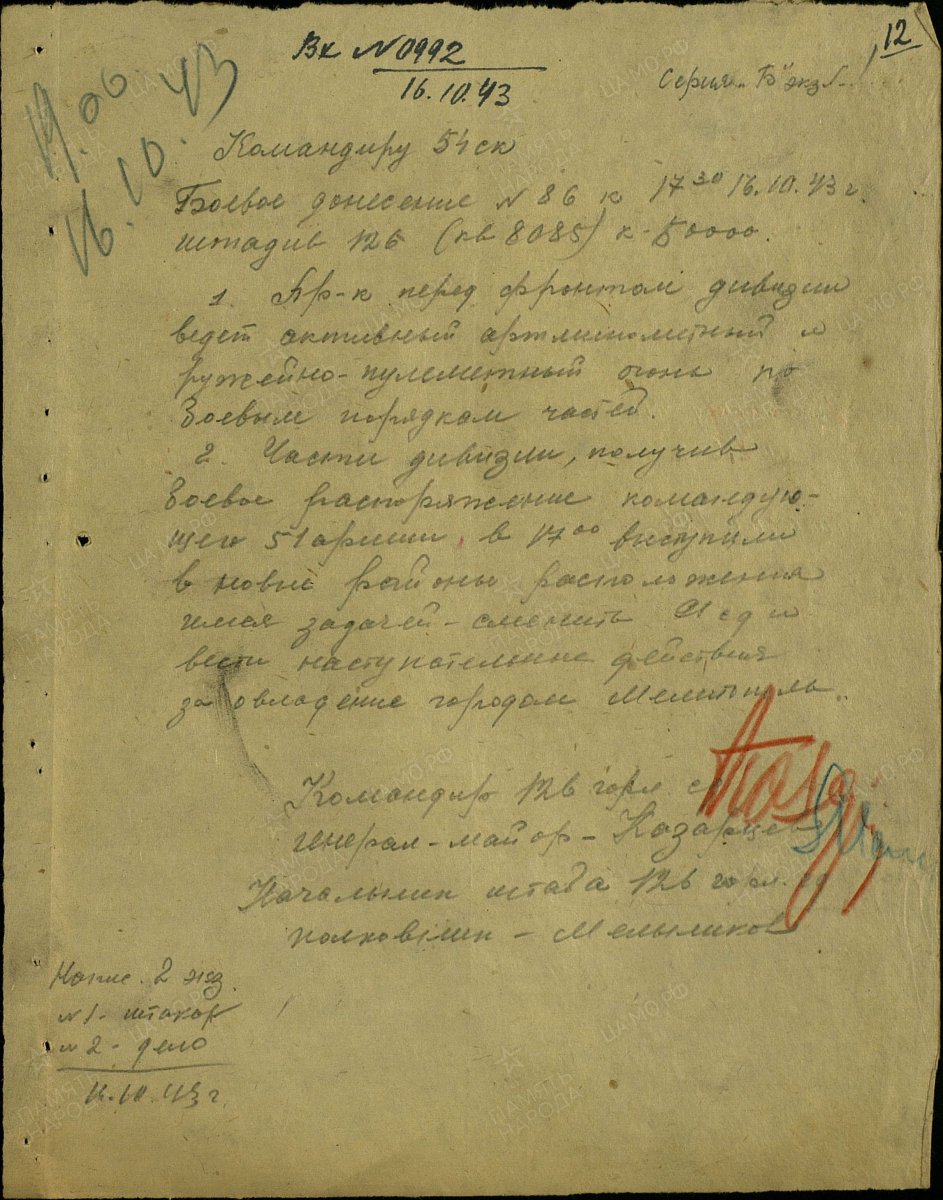 12
Вх №0992
16.10.43
Серия "Б" экз 1
19.00
16.10.43
Командиру 54 ск
Боевое донесение №86 к 17 30 16.10.43 г.
штадив 126 (кв 8085) к-50000.
1. Пр-к перед фронтом дивизии
ведет активный артминометный и
ружейно-пулеметный огонь по
боевым порядкам частей.
2. Части дивизии, получив
боевое распоряжение командую-
щего 51 армии, в 17 00 выступили
в новые районы расположения
имея задачей - сменить 91 сд и
вести наступательные действия
за овладение городом Мелитополь.
Командир 126 горл сд
генерал-майор - Казарцев
Начальник штаба 126 горл. сд
полковник - Мельников
Напис. 2 экз.
№1 - штакор
№2 - дело
16.10.43 г.